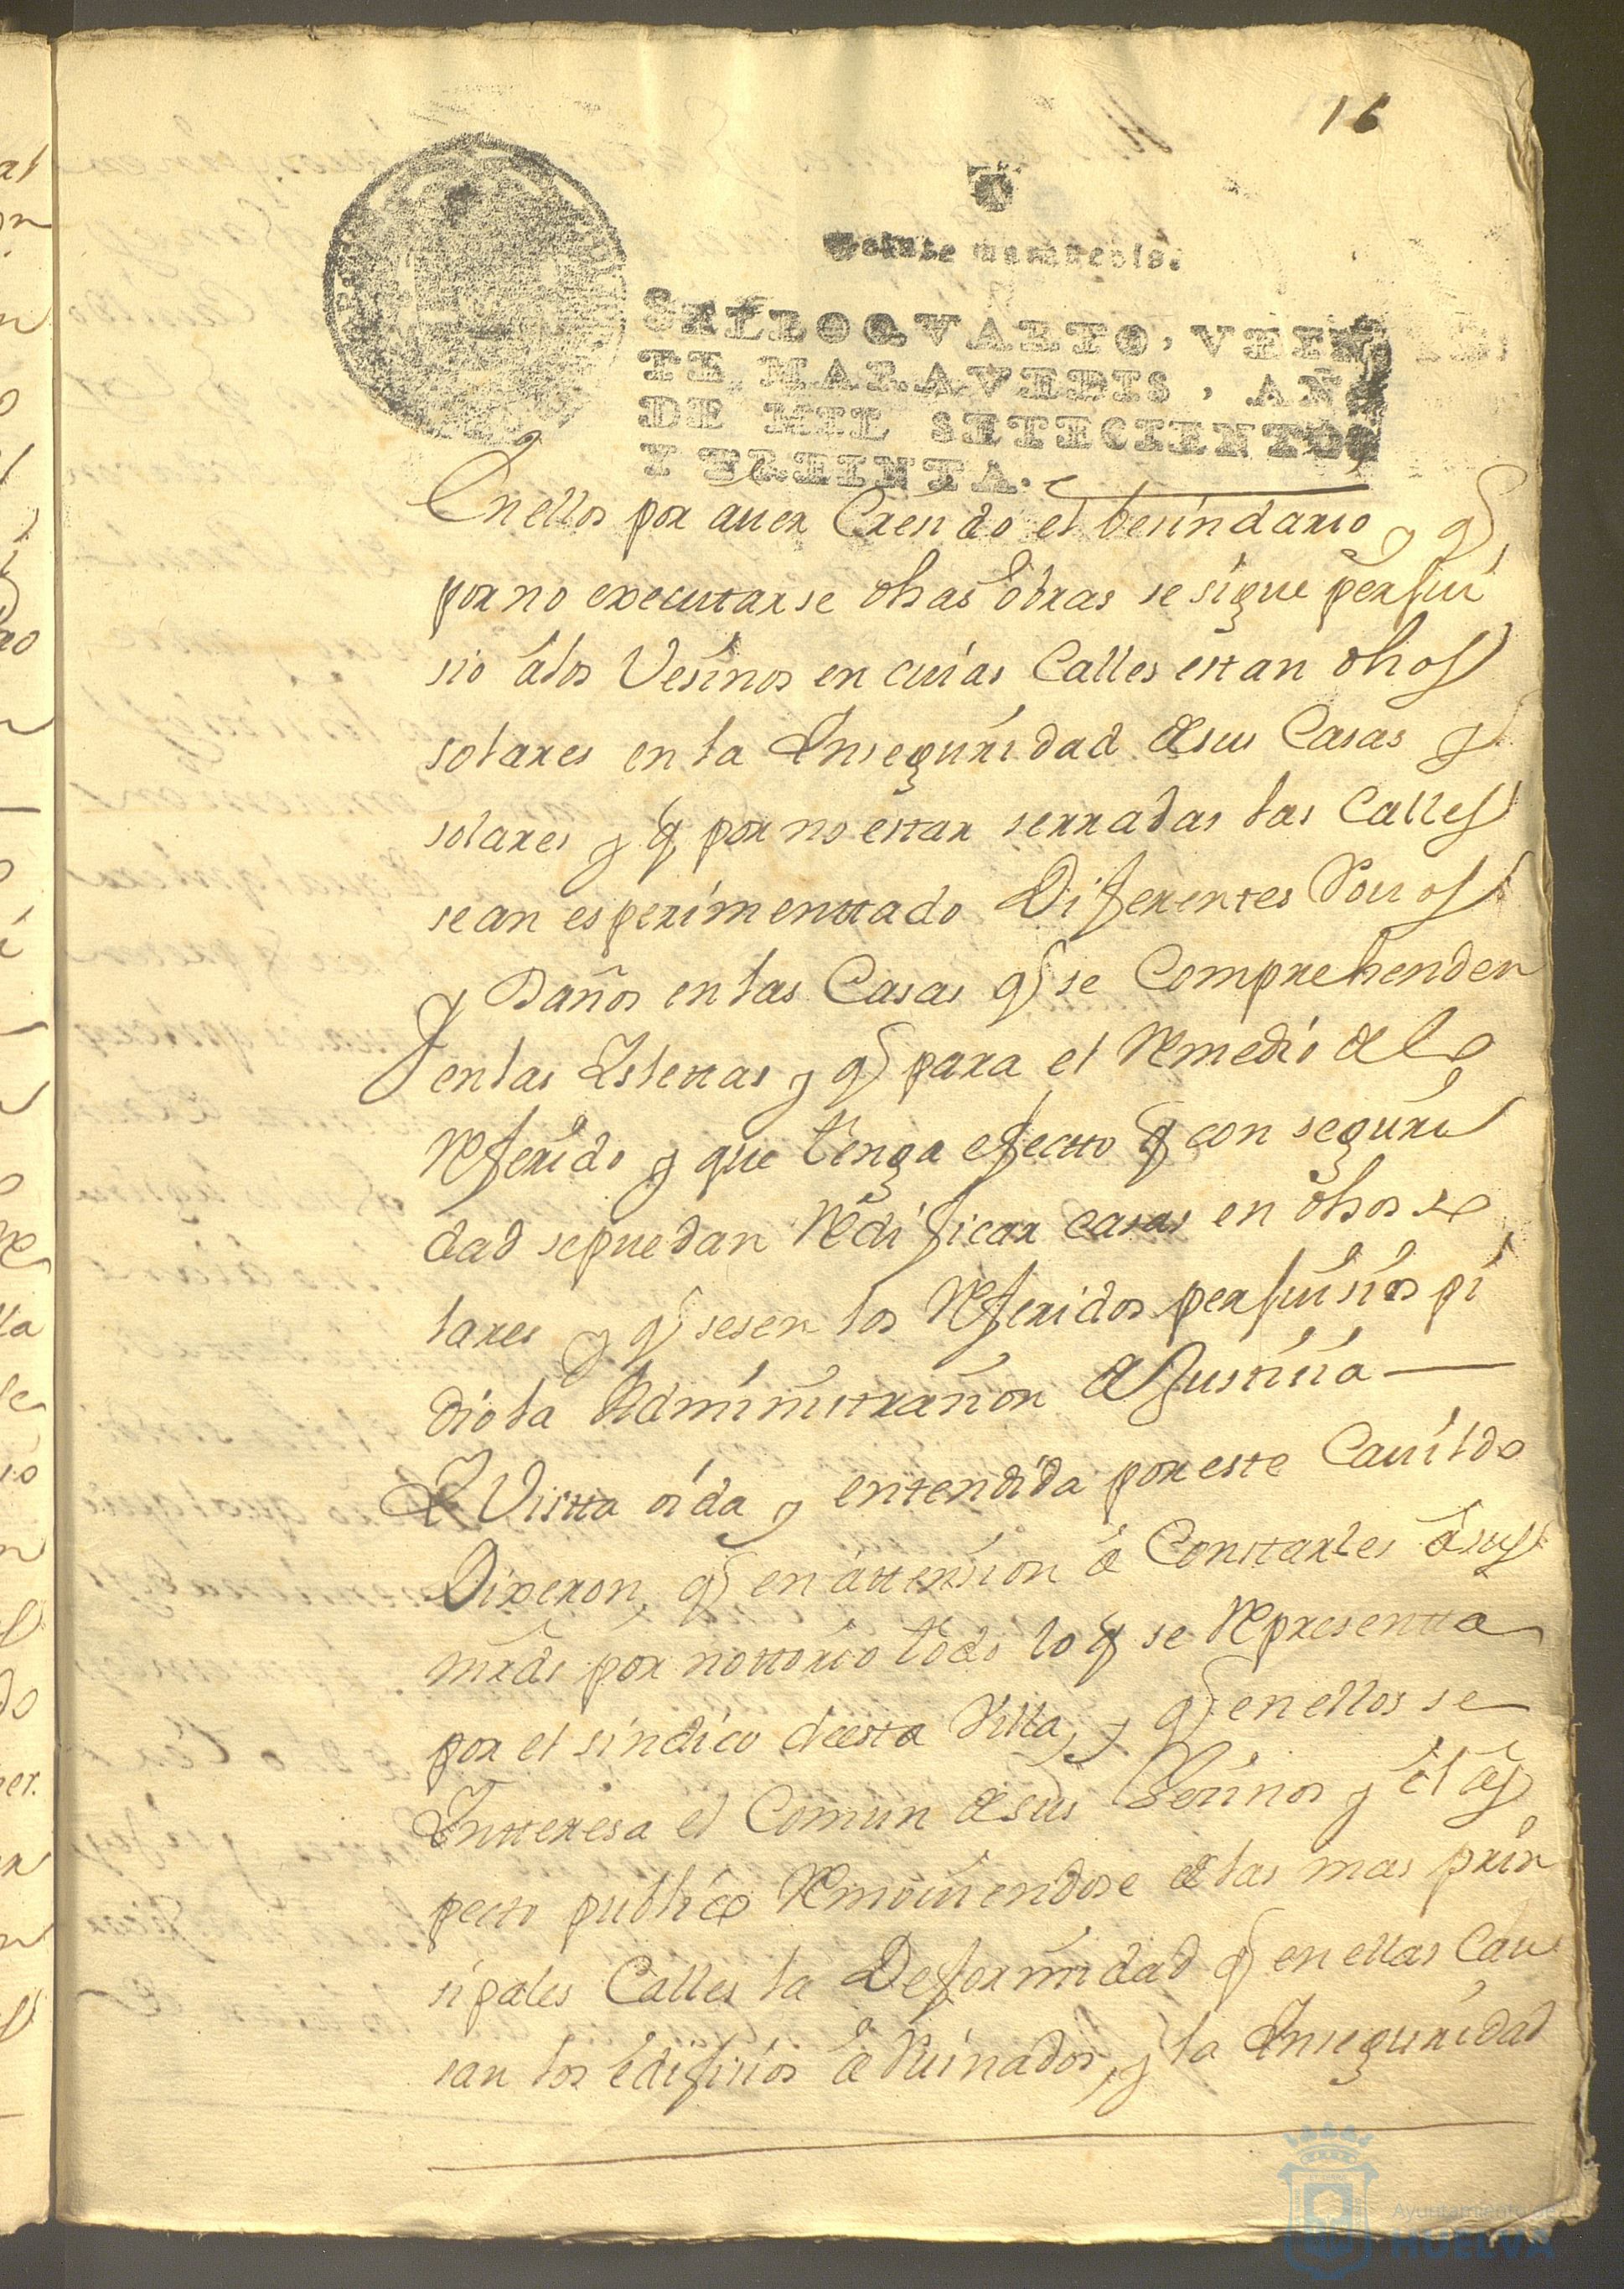 16
Veinte maravedis.
SELLO QVARTO, VEIN
TE MARAVEDIS, AÑO
DE MIL SETECIENTOS
Y TREINTA.
En ellos por auer Cresido el besindario y q̃
por no executarse dhas obras se sigue perjui
sio a los Vesinos en cuias Calles estan dhos
solares en la Inseguridad de sus Casas y
solares y q̃ por no estar serradas las Calles
se an esperimenttado Diferentes Rouos
y Daños en las Casas q̃ se Comprehenden
en las Islettas y q̃ para el Remedio de lo
Referido y que tenga efectto q̃ con seguri
dad se puedan Redificar casas en dhos so
lares y q̃ sesen los Referidos perjuisios pi
dio la Administrazion de Justizia
Y Vistta oida y entendida por este Cauildo
Dixeron, q̃ en attension a Constarles a sus
mrds por nottorio todo lo q̃ se Representta
por el sindico deesta Villa, y q̃ en ellos se
Intteresa el Comun de sus Vezinos y el as
pecto publico Remouiendose de las mas prin
sipales Calles la Deformidad q̃ en ellas Cau
san los edifisios a Ruinados, y la Inseguridad
Ayuntamiento de
HUELVA